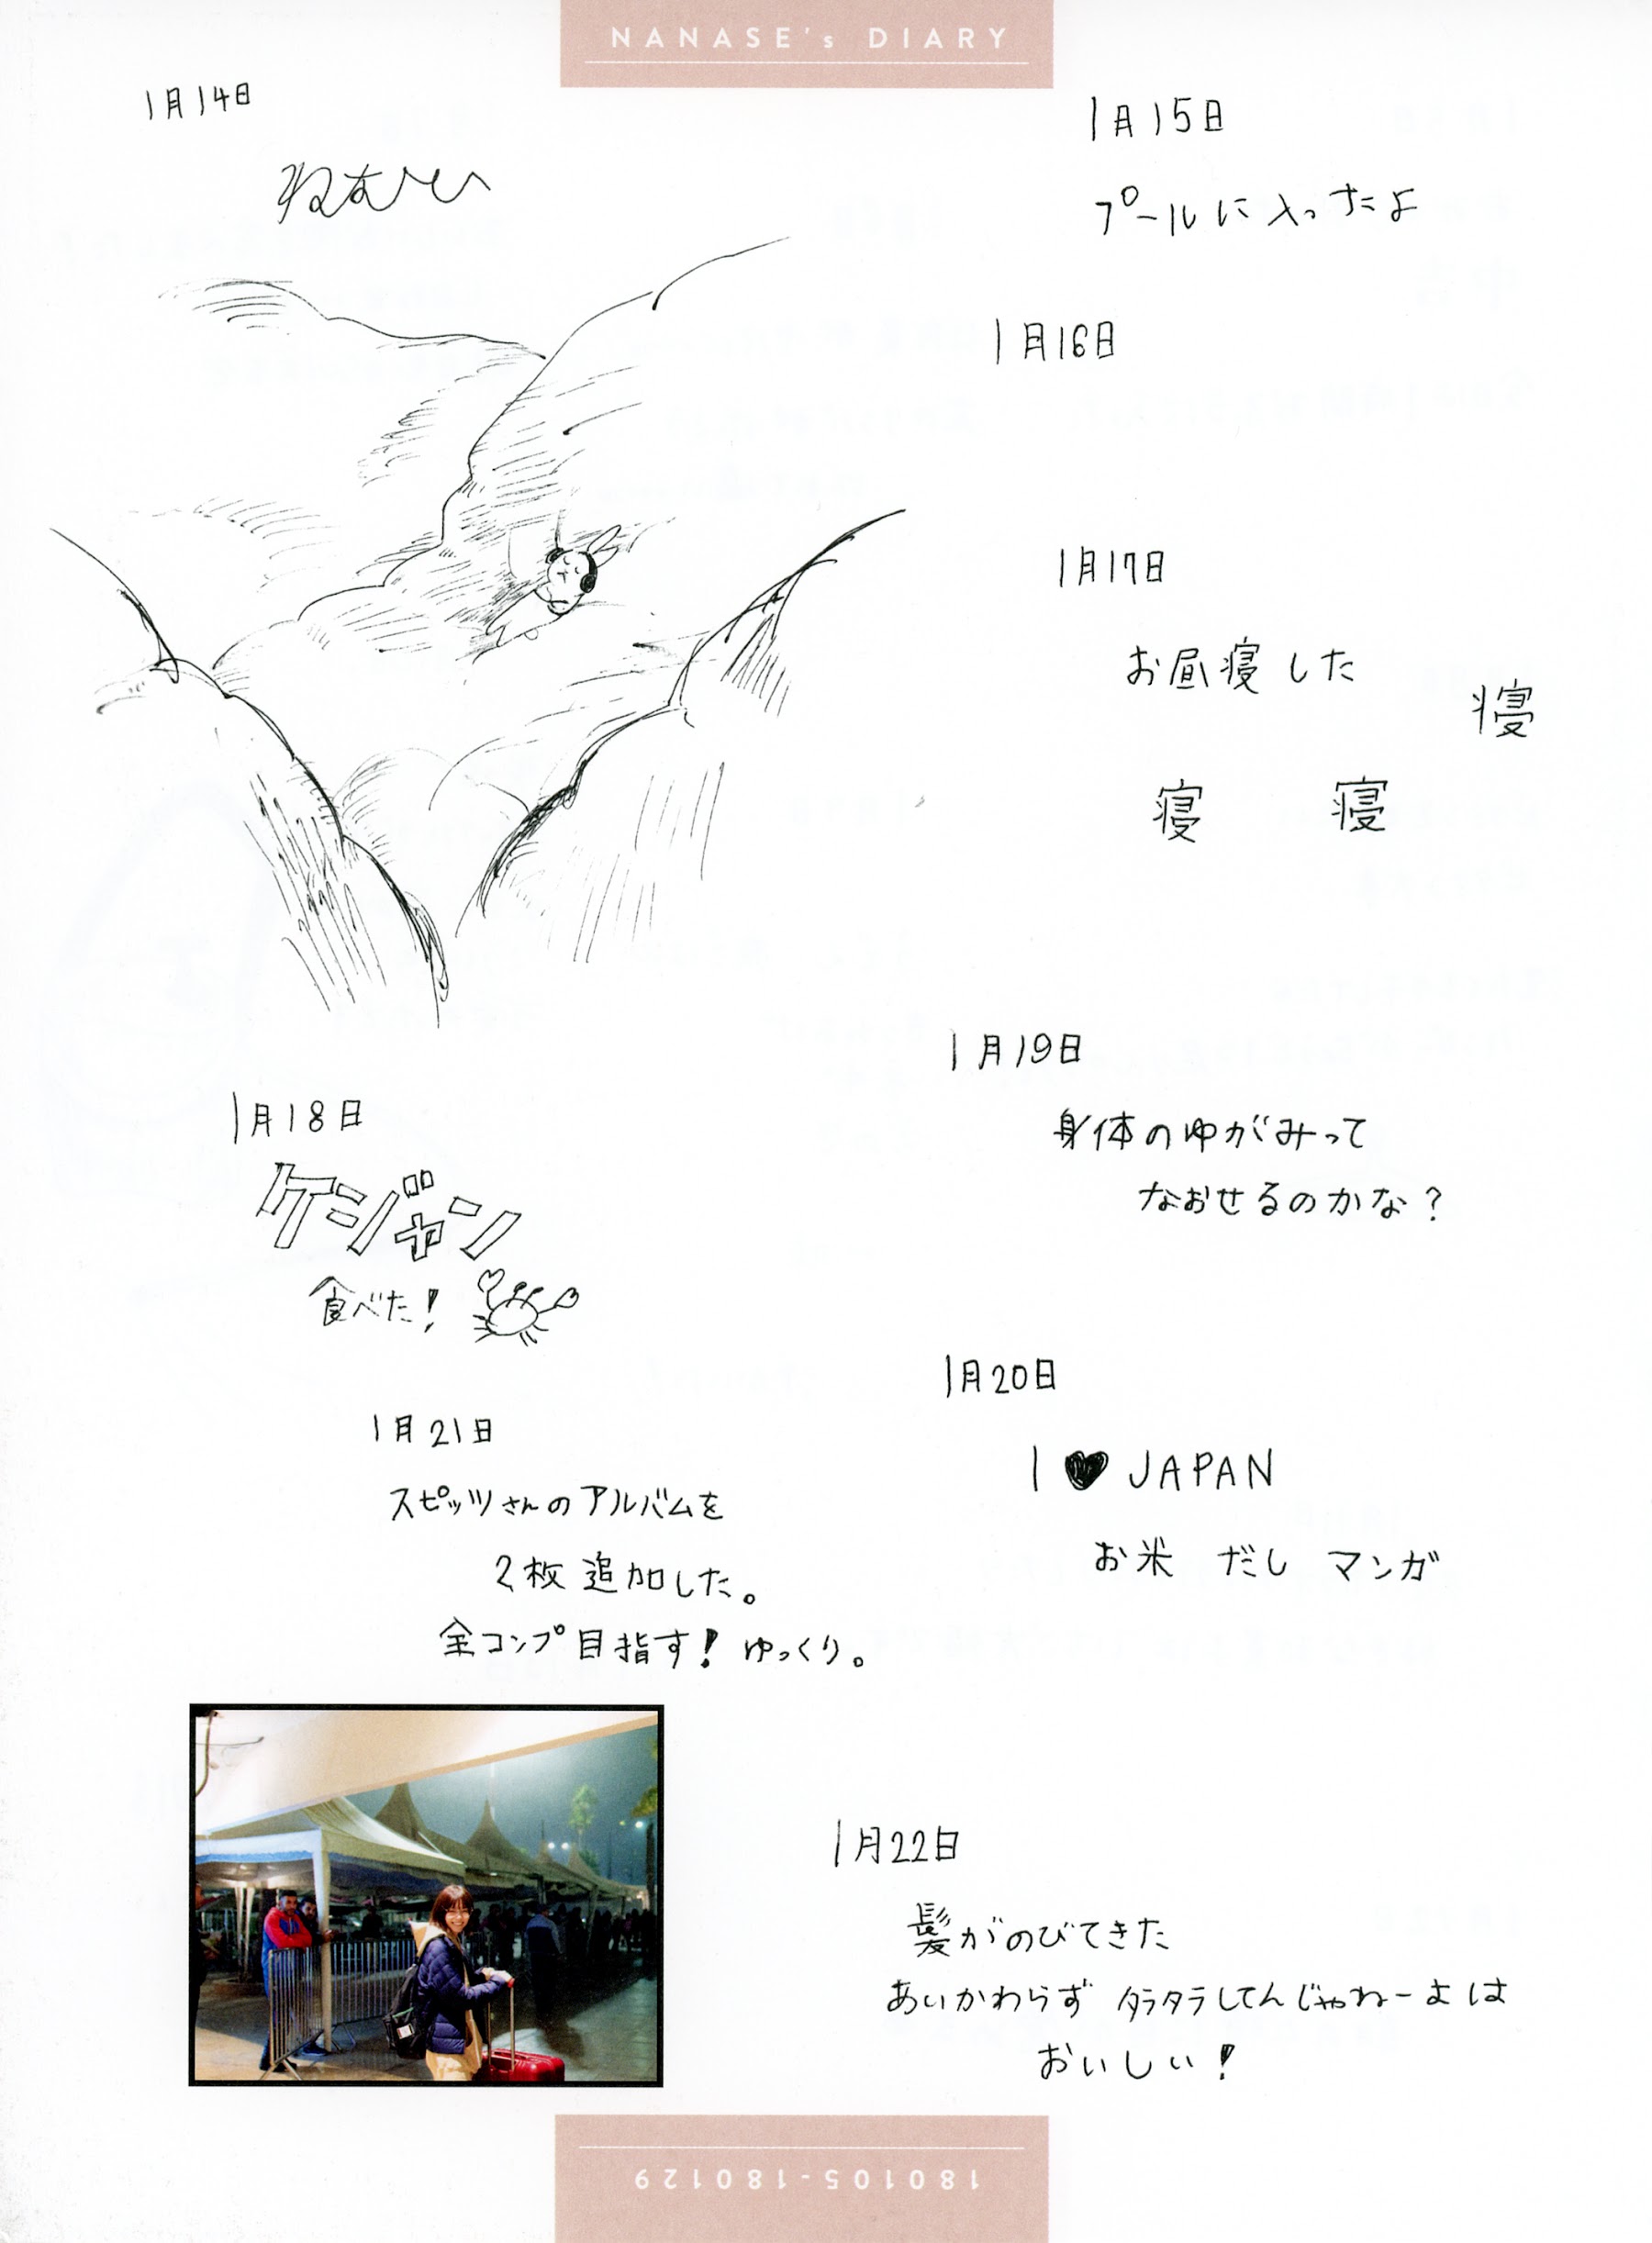 NANASE's DIARY
1月14日
ねむい
1月15日
プールに入ったよ
1月16日
1月17日
お昼寝した
寝
寝 寝
1月18日
ケジャン
食べた!
1月19日
身体のゆがみって
なおせるのかな?
1月20日
I ♥ JAPAN
お米 だし マンガ
1月21日
スピッツさんのアルバムを
2枚追加した。
全コンプ目指す! ゆっくり。
1月22日
髪がのびてきた
あいかわらず タラタラしてんじゃねーよは
おいしい!
180105-180129